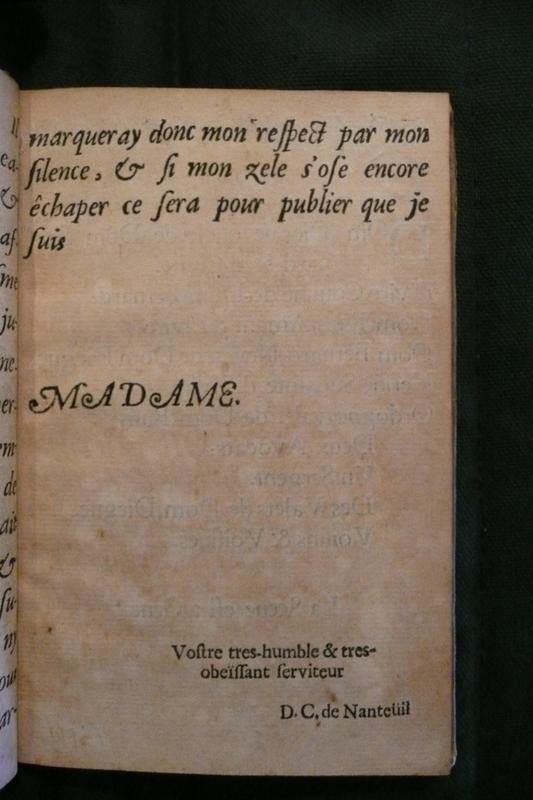 marqueray donc mon respect par mon
silence, & si mon zele s'ose encore
êchaper ce sera pour publier que je
suis
MADAME.
Vostre tres-humble & tres-
obeïssant serviteur
D. C. de Nanteüil